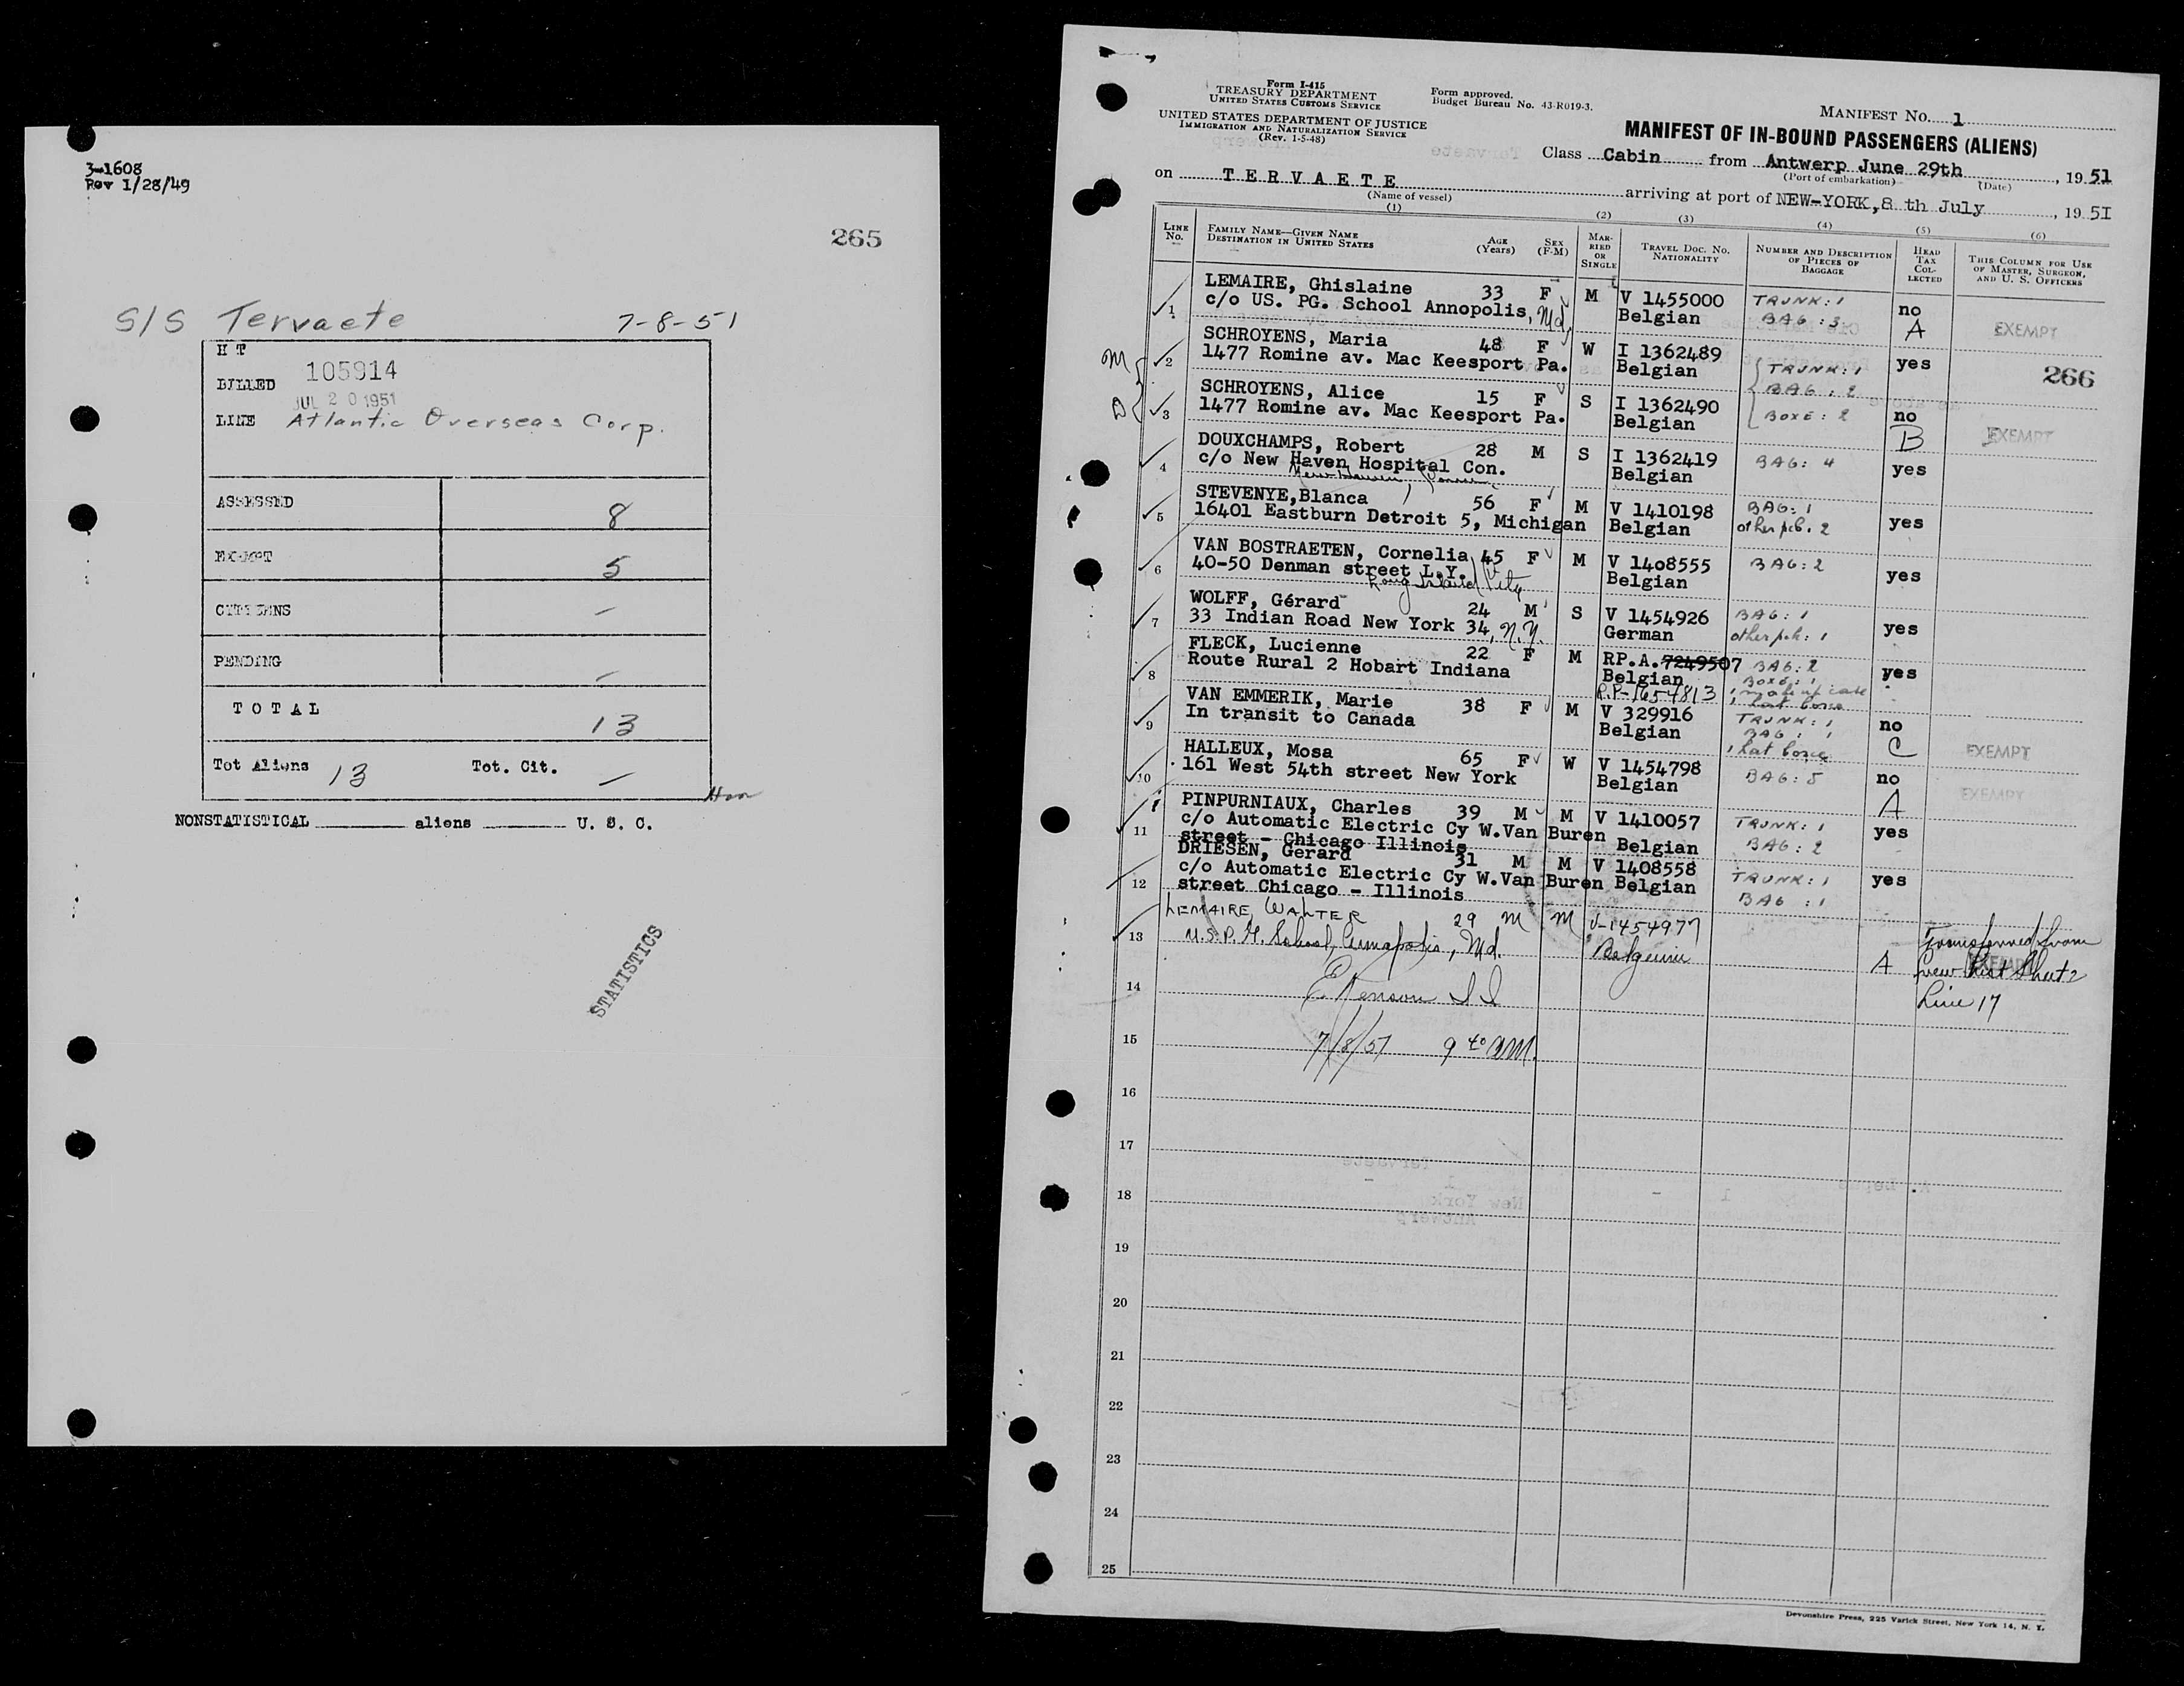 3-1608
Rev 1/28/49
265
S/S Tervaete 7-8-51
H T
BILLED 105914
JUL 20 1951
LINE Atlantic Overseas Corp.
ASSESSED 8
EXEMPT 5
CITIZENS —
PENDING —
TOTAL 13
Tot Aliens 13 Tot. Cit. —
NONSTATISTICAL aliens U. S. C.
STATISTICS
Form I-415
TREASURY DEPARTMENT
UNITED STATES CUSTOMS SERVICE
UNITED STATES DEPARTMENT OF JUSTICE
IMMIGRATION AND NATURALIZATION SERVICE
(Rev. 1-5-48)
Form approved.
Budget Bureau No. 43-R019-3.
MANIFEST NO. 1
MANIFEST OF IN-BOUND PASSENGERS (ALIENS)
Class Cabin from Antwerp June 29th, 1951
(Port of embarkation) (Date)
on TERVAETE arriving at port of NEW-YORK, 8 th July, 195I
(Name of vessel)
(1) (2) (3) (4) (5) (6)
LINE No. FAMILY NAME—GIVEN NAME DESTINATION IN UNITED STATES AGE (Years) SEX (F-M) MARRIED OR SINGLE TRAVEL DOC. NO. NATIONALITY NUMBER AND DESCRIPTION OF PIECES OF BAGGAGE HEAD TAX COLLECTED THIS COLUMN FOR USE OF MASTER, SURGEON, AND U. S. OFFICERS
LEMAIRE, Ghislaine 33 F M V 1455000 TRUNK: 1 no
1 c/o US. PG. School Annopolis, Md. Belgian BAG: 3 A EXEMPT
SCHROYENS, Maria 48 F W I 1362489 TRUNK: 1 yes 266
M 2 1477 Romine av. Mac Keesport Pa. Belgian BAG: 2
SCHROYENS, Alice 15 F S I 1362490 BOXE: 2 no
D 3 1477 Romine av. Mac Keesport Pa. Belgian B EXEMPT
DOUXCHAMPS, Robert 28 M S I 1362419 BAG: 4 yes
4 c/o New Haven Hospital Con. Belgian
New Haven,
STEVENYE,Blanca 56 F M V 1410198 BAG: 1
5 16401 Eastburn Detroit 5, Michigan Belgian other pck. 2 yes
VAN BOSTRAETEN, Cornelia 45 F M V 1408555 BAG: 2
6 40-50 Denman street L.Y. Belgian yes
Long Island City
WOLFF, Gérard 24 M S V 1454926 BAG: 1
7 33 Indian Road New York 34, N.Y. German other pck: 1 yes
FLECK, Lucienne 22 F M RP.A.7249507 BAG: 2
8 Route Rural 2 Hobart Indiana Belgian BOXE: 1 yes
R.P-1654813 1 make up case
1 hat boxe
VAN EMMERIK, Marie 38 F M V 329916 TRUNK: 1 no
9 In transit to Canada Belgian BAG: 1 C EXEMPT
1 hat boxe
HALLEUX, Mosa 65 F W V 1454798 BAG: 5 no
10 161 West 54th street New York Belgian A EXEMPT
PINPURNIAUX, Charles 39 M M V 1410057 TRUNK: 1
11 c/o Automatic Electric Cy W.Van Buren Belgian BAG: 2 yes
street - Chicago Illinois
DRIESEN, Gerard 31 M M V 1408558 TRUNK: 1 yes
12 c/o Automatic Electric Cy W.Van Buren Belgian BAG: 1
street Chicago - Illinois
LEMAIRE, WALTER 29 M M V-1454977 Transferred from
13 U.S.P.G. School, Annapolis, Md. Belgium A EXEMPT crew list Sheet 2
14 Line 17
15 7/8/51 9 40 AM.
16
17
18
19
20
21
22
23
24
25
Devonshire Press, 225 Varick Street, New York 14, N. Y.